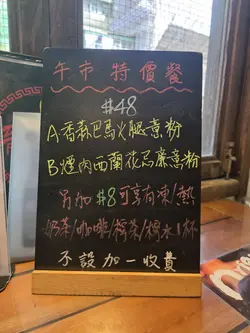 午市 特價餐
#48
A香蒜巴馬火腿意粉
B煙肉西蘭花忌廉意粉
另加 #8 可享有凍/熱
奶茶/咖啡/檸茶/檸水1杯
不設加一收費